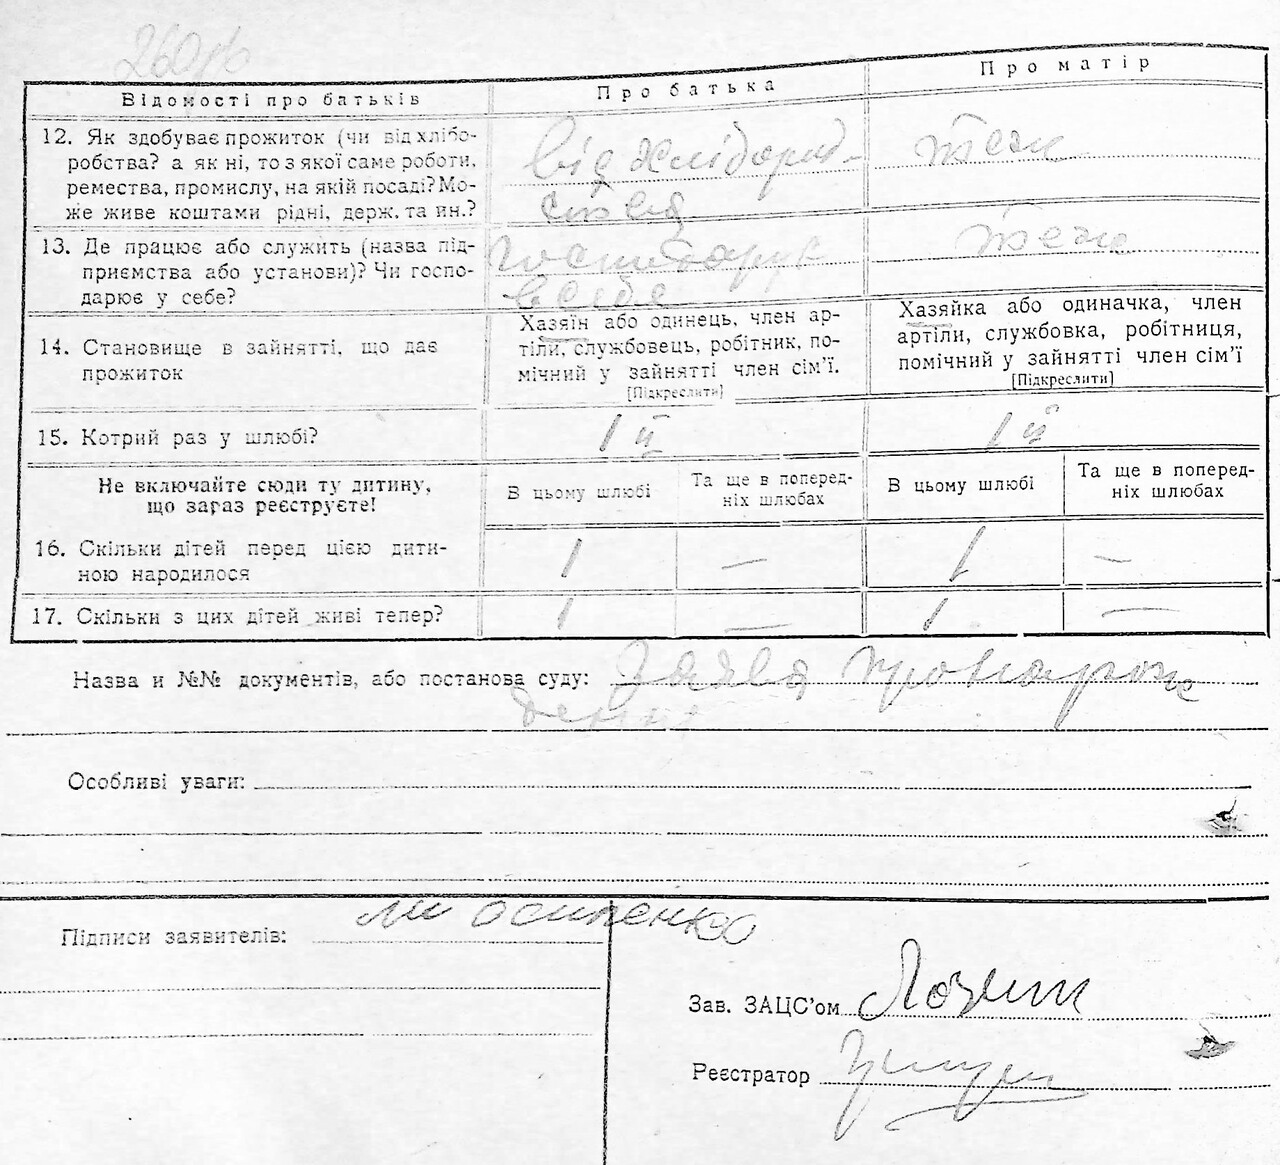 260
Відомості про батьків
Про батька
Про матір
12. Як здобуває прожиток (чи від хлібо-
робства? а як ні, то з якої саме роботи,
ремества, промислу, на якій посаді? Мо-
же живе коштами рідні, держ. та ин.?
від хлібороб-
ства
теж
13. Де працює або служить (назва під-
приємства або установи)? Чи госпо-
дарює у себе?
господарює
в себе
теж
14. Становище в зайнятті, що дає
прожиток
Хазяїн або одинець, член ар-
тіли, службовець, робітник, по-
мічний у зайнятті член сім'ї.
[Підкреслити]
Хазяйка або одиначка, член
артіли, службовка, робітниця,
помічний у зайнятті член сім'ї
[Підкреслити]
15. Котрий раз у шлюбі?
1 й
1 й
Не включайте сюди ту дитину,
що зараз реєструєте!
В цьому шлюбі
Та ще в поперед-
ніх шлюбах
В цьому шлюбі
Та ще в поперед-
ніх шлюбах
16. Скільки дітей перед цією дити-
ною народилося
1
—
1
—
17. Скільки з цих дітей живі тепер?
1
—
1
—
Назва и №№ документів, або постанова суду: Заява про народж
дення
Особливі уваги:
Підписи заявителів: Осипенко
Зав. ЗАЦС'ом
Реєстратор